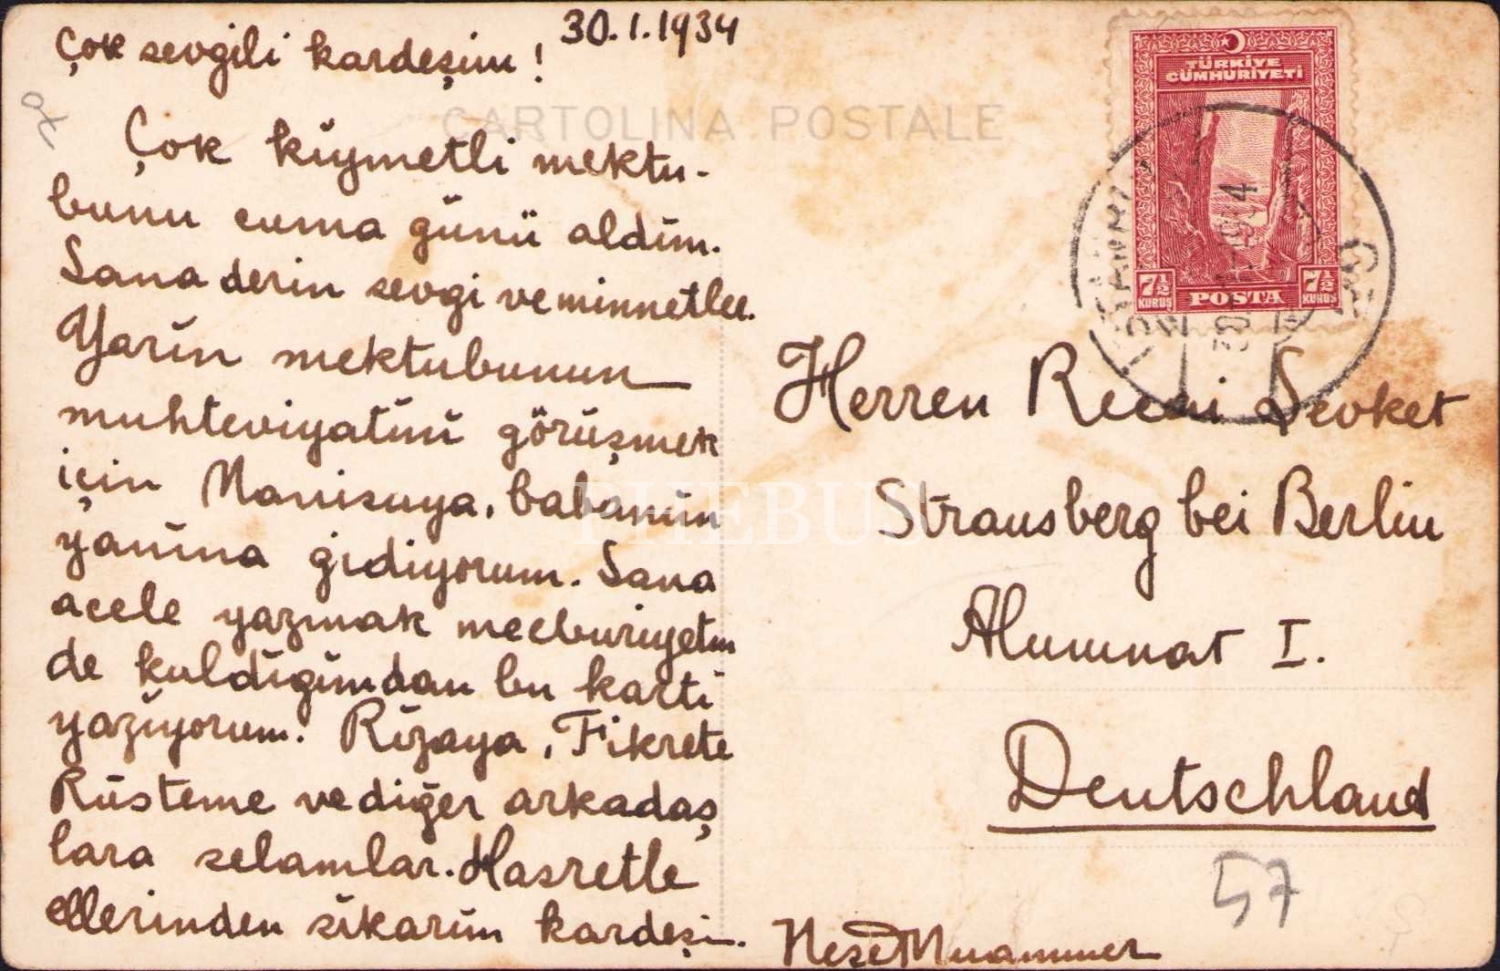 30.1.1934
Çok sevgili kardeşim!
CARTOLINA POSTALE
Çok kıymetli mektu-
bunu cuma günü aldım.
Sana derin sevgi ve minnetler.
Yarın mektubunun
muhteviyatını görüşmek
için Manisaya, babamın
yanına gidiyorum. Sana
acele yazmak mecburiyetin
de kaldığımdan bu kartı
yazıyorum. Rızaya, Fikrete
Rüsteme ve diğer arkadaş
lara selamlar. Hasretle
ellerinden sıkarım kardeşi.
Muammer
TÜRKİYE
CÜMHURİYETİ
7½ KURUŞ POSTA 7½ KURUŞ
Herren Recai Şevket
Strausberg bei Berlin
Alumnat I.
Deutschland
57
PHEBUS